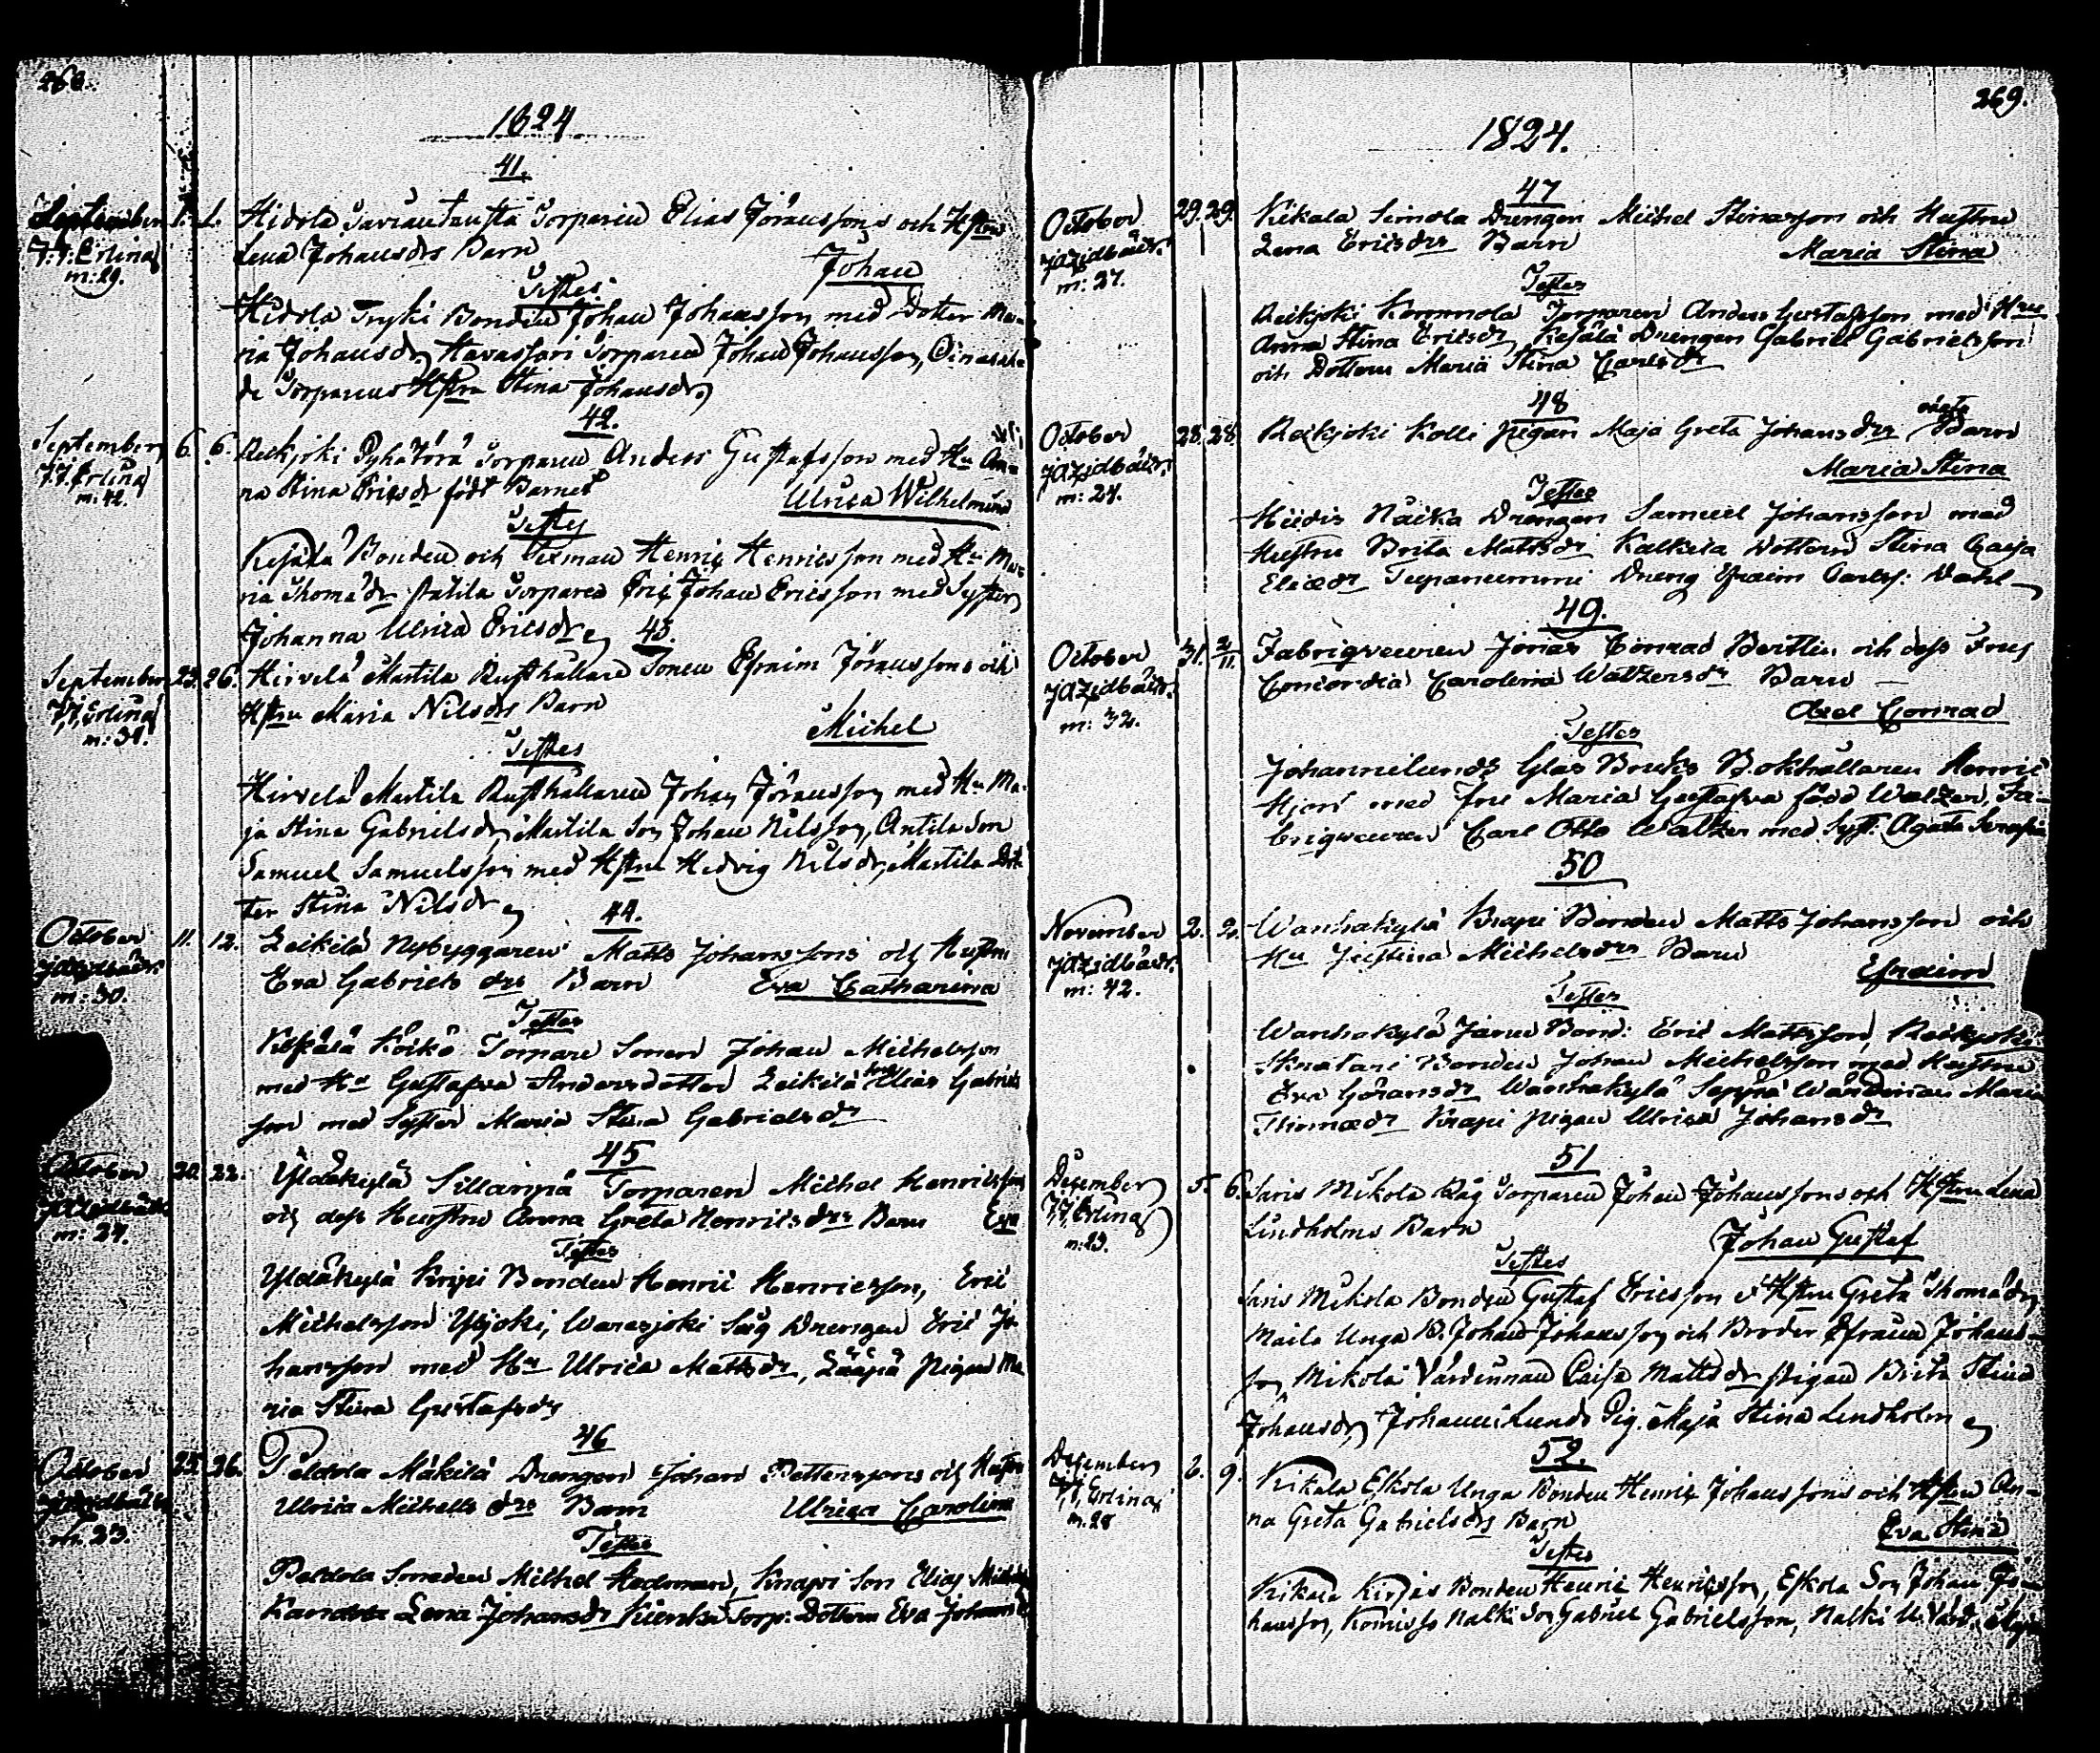 268.
1824
41.
September 1. 1. Hidola Torparen Elias Jöranssons och Hstru
J:J:Erlina Lena Johansdrs Barn Johan
m:29.
Testes
Hidola Tryki Bonden Johan Johansson med Dotter Ma-
ria Johansdr, Havassari Torparen Johan Johansson,
de Torparens Hstru Stina Johansdr,
42.
September 6. 6. Reikjoki Pyhätörä Torparen Anders Gustafsson med Hu An-
J.J.Erlina na Stina Ericsdr född Barnet Ulrica Wilhelmina
m:42.
Testes
Kesälä Bonden och Henric Henricsson med Hu Ma-
ria Thomædr Torparen Eric Johan Ericsson med Syster
Johanna Ulrica Ericsdr,
43.
September 23. 26. Hirvelä Martila Rusthållare Sonen Efraim Jöranssons och
J.J.Erlina Hstru Maria Nilsdrs Barn Michel
m:31.
Testes
Hirvelä Martila Rusthållaren Johan Jöransson med Hu Ma-
ja Stina Gabrielsdr, Martila Son Johan Nilsson, Antila Son
Samuel Samuelsson med Hstru Hedvig Nilsdr, Martila Dot-
ter Stina Nilsdr,
44.
October 11. 12. Leikilä Nybyggaren Matts Johanssons och Hustru
m:30. Eva Gabriels drs Barn Eva Catharina
Testes
Köikö Torpare Sonen Johan Michelsson
med Hu Gustafva Andersdotter Leikilä Son Elias Gabriels
son med Syster Maria Stina Gabrielsdr
45
October 20. 22. Yldäkylä Sillanpä Torparen Michel Henricsson
m:27. och dess Hustru Anna Greta Henricsdrs Barn Eva
Testes
Yldäkylä Kripi Bonden Henric Henricsson, Eric
Michelsson Ylijoki, Waresjoki Drengen Eric Jo-
hansson med Hu Ulrica Mattsdr, Lääpä Pigan Ma
ria Stina Gustafsdr
46
October 25. 26. Peldola Mäkilä Drengen Johan Pettersons och Hustru
m:23. Ulrica Michels drs Barn Ulrica Carolina
Testes
Peldola Smeden Michel Hedman, Knapi Son Elias
Lena Johansdr Torp: Dottern Eva
269.
1824.
47
October 29. 29. Kikala Simola Drengen Michel Stinasson och Hustru
JAZidbäck: Lena Ericsdrs Barn Maria Stina
m:27.
Testes
Reikjoki Korpinola Torparen Anders Gustafsson med Hu
Anna Stina Ericsdr, Kesälä Drengen Gabriel Gabrielsson
och Dottern Maria Stina Carlsdr
48
October 28. 28. Reikjoki Kolli Pigan Maja Greta Johansdrs oägta Barn
JAZidbäck: Maria Stina
m:24.
Testes
Hiidis Näika Drengen Samuel Johansson med
Hustru Brita Mattsdr Kalkila Dottern Stina Caisa
Eliædr Tupanummi Dreng Efraim Carlss: Dahl
49.
October 31. 2/11. Fabriqueuren Jonas Conrad Bertlin och dess Fru
JAZidbäck: Concordia Carolina Waltzersdr Barn
m:32. Axel Conrad
Testes
Johannislunds Glas Bruks Bokhållaren Henric
Hjort med Fru Maria Gustafva född Waltzer, Fa-
briqueuren Carl Otto Waltzer med Syst: Agata Serafia
50
November 2. 2. Wanhakylä Krapi Bonden Matts Johansson och
JAZidbäck: Hu Justina Michelsdrs Barn Efraim
m:42.
Testes
Wanhakylä Jänu Bond: Eric Mattsson, Reikjoki
Bonden Johan Michelsson med Hustru
Eva Göransdr Wanhakylä Seppä Wärdinnan Maria
Thomædr Krapi Pigan Ulrica Johansdr
51
December 5. 6. Saris Mikola Råg Torparen Johan Johanssons och Hstru Lena
J.J.Erlina Lindholms Barn Johan Gustaf
m:23.
Testes
Saris Mikola Bonden Gustaf Ericsson o Hstru Greta Thomædr,
Maila Unga B. Johan Johansson och Broder Efraim Johans-
son, Mikola Värdinnan Caisa Mattsdr Pigan Brita Stina
Johansdr, Johannislunds Pig. Maja Stina Lindholm
52.
December 2. 9. Kikala Eskola Unga Bonden Henric Johanssons och Hstru An-
J.J.Erlina na Greta Gabrielsdrs Barn Eva Stina
m.28
Testes
Kikala Kirjas Bonden Henric Henricsson, Eskola Son Johan Jo-
hansson, Komisso Nalki Son Gabriel Gabrielsson, Nalki